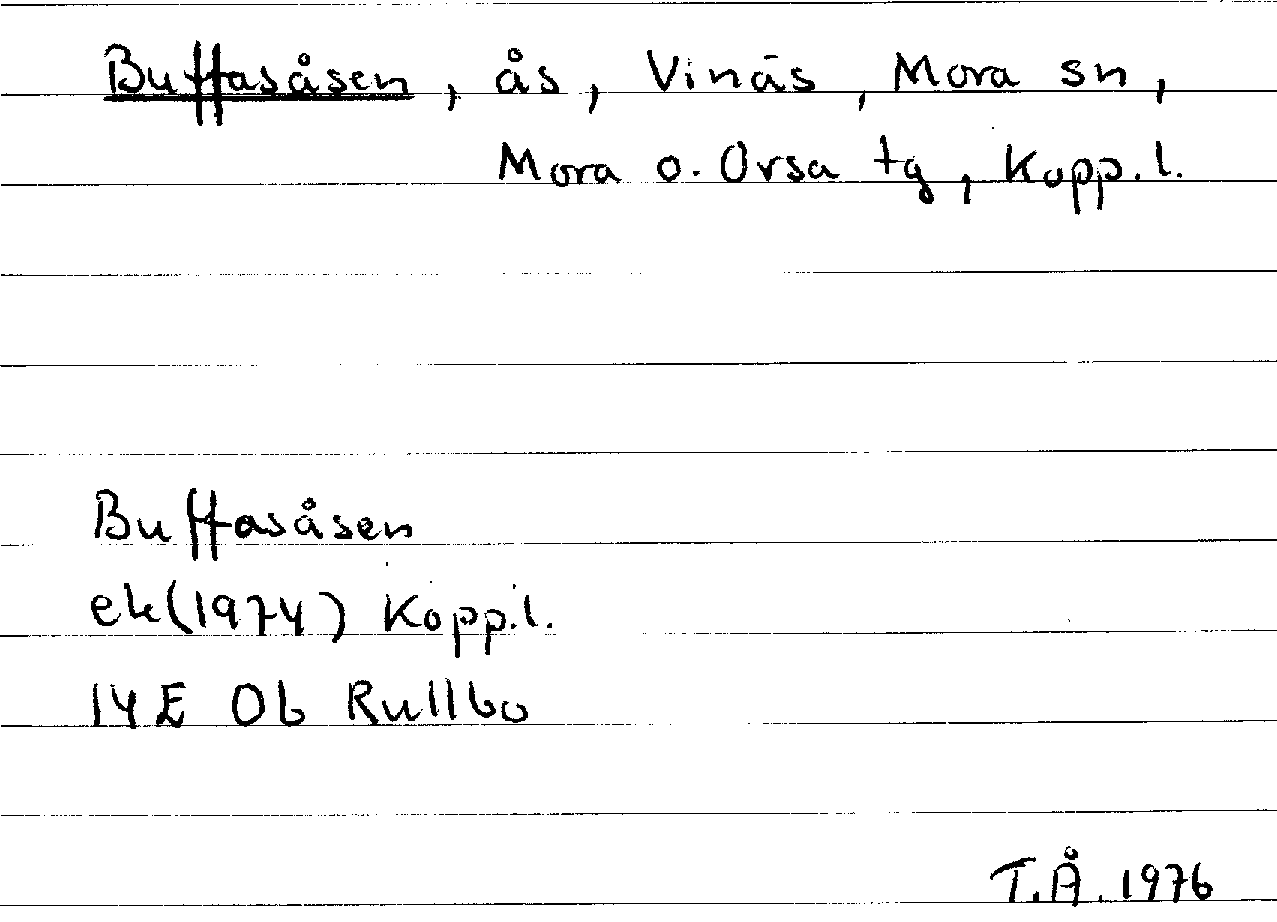 Buffasåsen, ås, Vinäs, Mora sn,
Mora o. Orsa tg, Kopp.l.
Buffasåsen
ek(1974) Kopp.l.
14E 0b Rullbo
T.Å. 1976